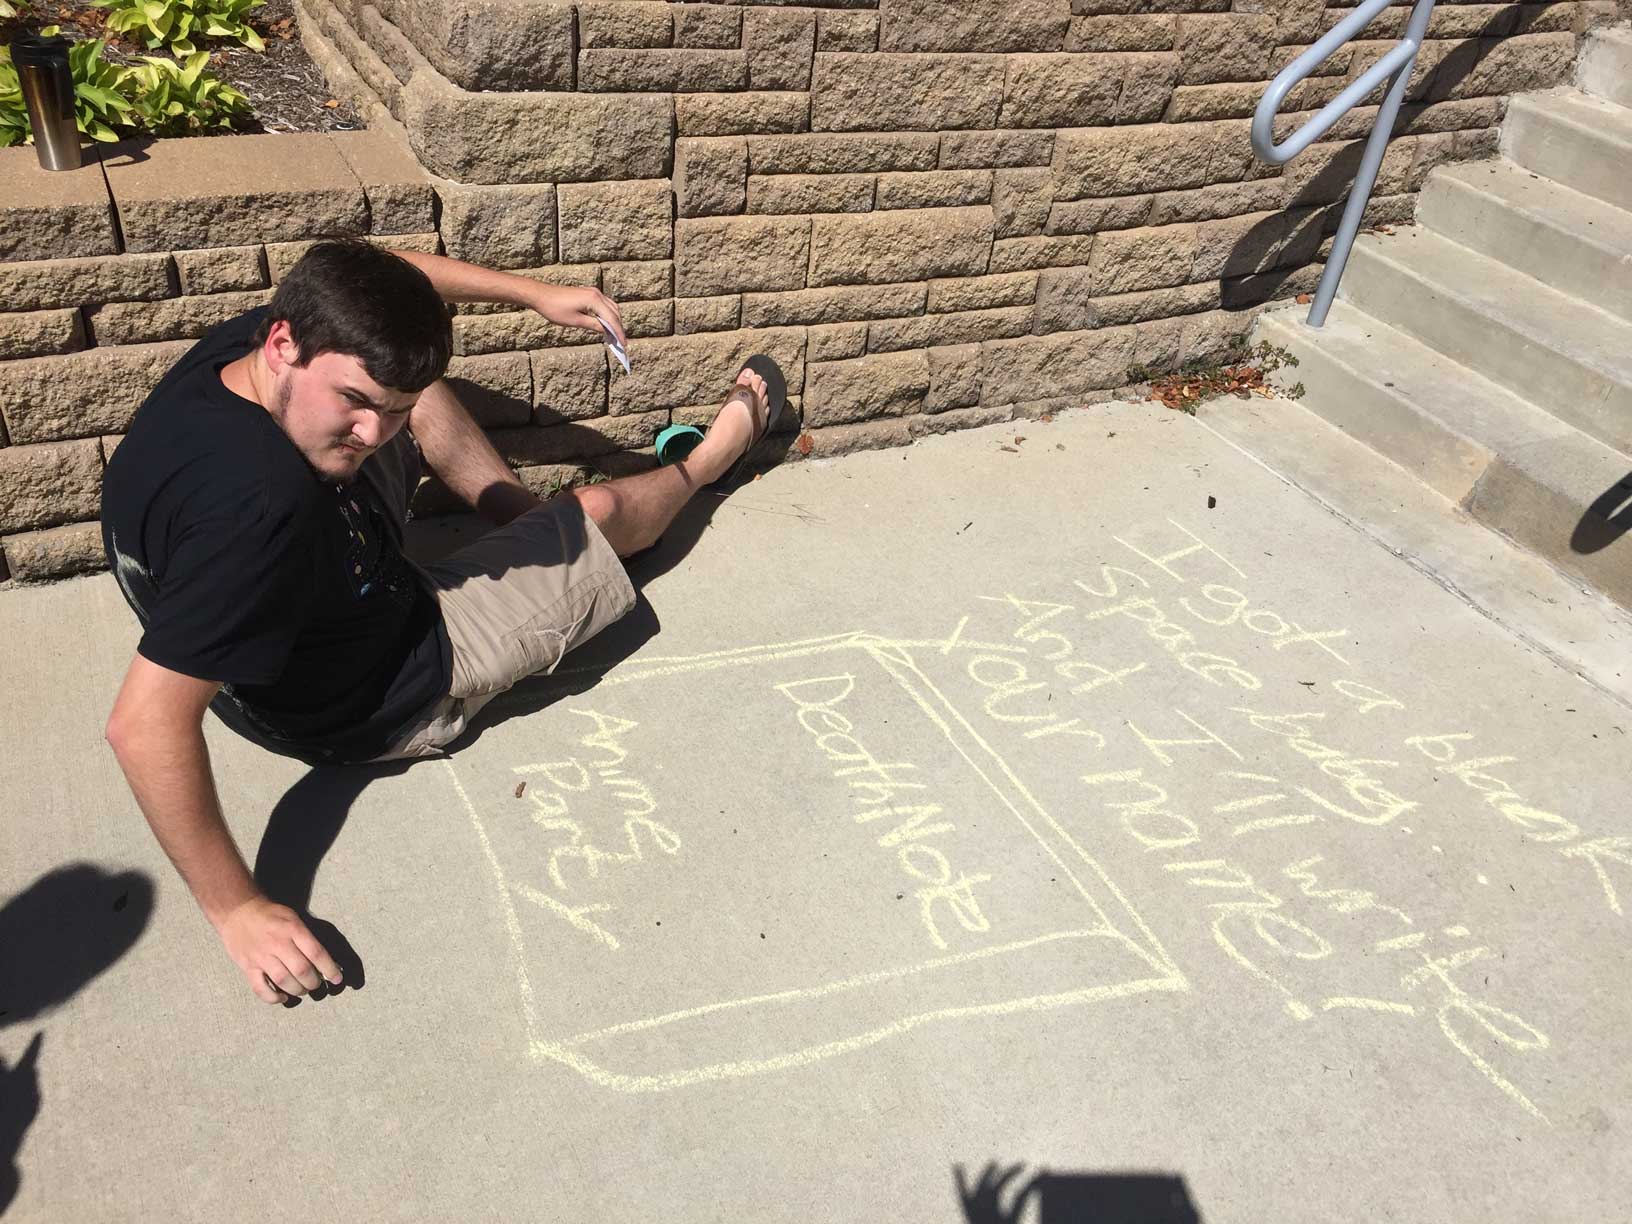 I got a blank
space baby...
And I'll write
Your name!
DeathNote
Anime
Party